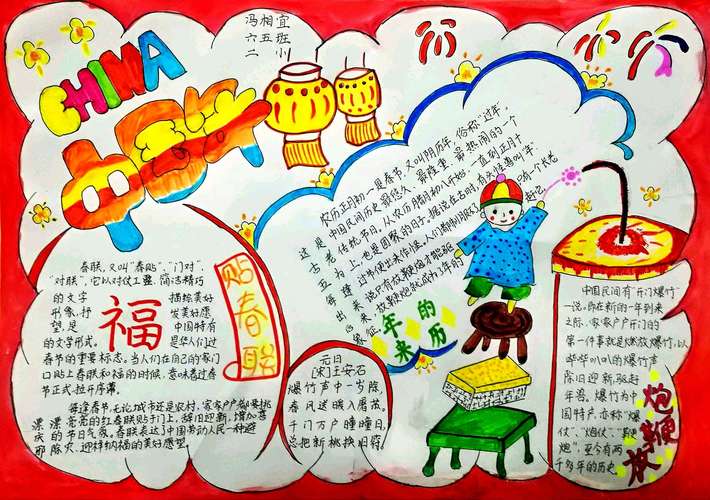 CHINA
中国年
冯相宜
六五班
二小
春联,又叫"春贴","门对",
"对联",它以对仗工整,简洁精巧
的文字 描绘美好
形象,抒 发美好愿
望,是 中国特有
的文学形式。 是华人们过
春节的重要标志。当人们在自己的家门
口贴上春联和福的时候,意味着过春
节正式拉开序幕。
每逢春节,无论城市还是农村,家家户户都要挑
漂漂亮亮的红春联贴于门上,辞旧迎新,增加喜
庆的节日气氛。春联表达了中国劳动人民一种避
邪除灾、迎祥纳福的美好愿望
福
贴春联
元日
[宋]王安石
爆竹声中一岁除
春风送暖入屠苏。
千门万户瞳瞳日,
总把新桃换旧符。
农历正月初一是春节,又叫阴历年,俗称"过年",
这是中国民间历史最悠久、最隆重、最热闹的一个
古老传统节日。从农历腊月初八开始,一直到正月十
五为上,也是团聚的日子。
年的
来历
中国民间有"开门爆竹"
一说。即在新的一年到来
之际,家家户户开门的
第一件事就是燃放爆竹,以
哔哔叭叭的爆竹声
除旧迎新,驱赶
年兽。爆竹为中
国特产,亦称"爆
仗"、"炮仗"、"鞭
炮",至今有两
千多年的历史
放鞭炮